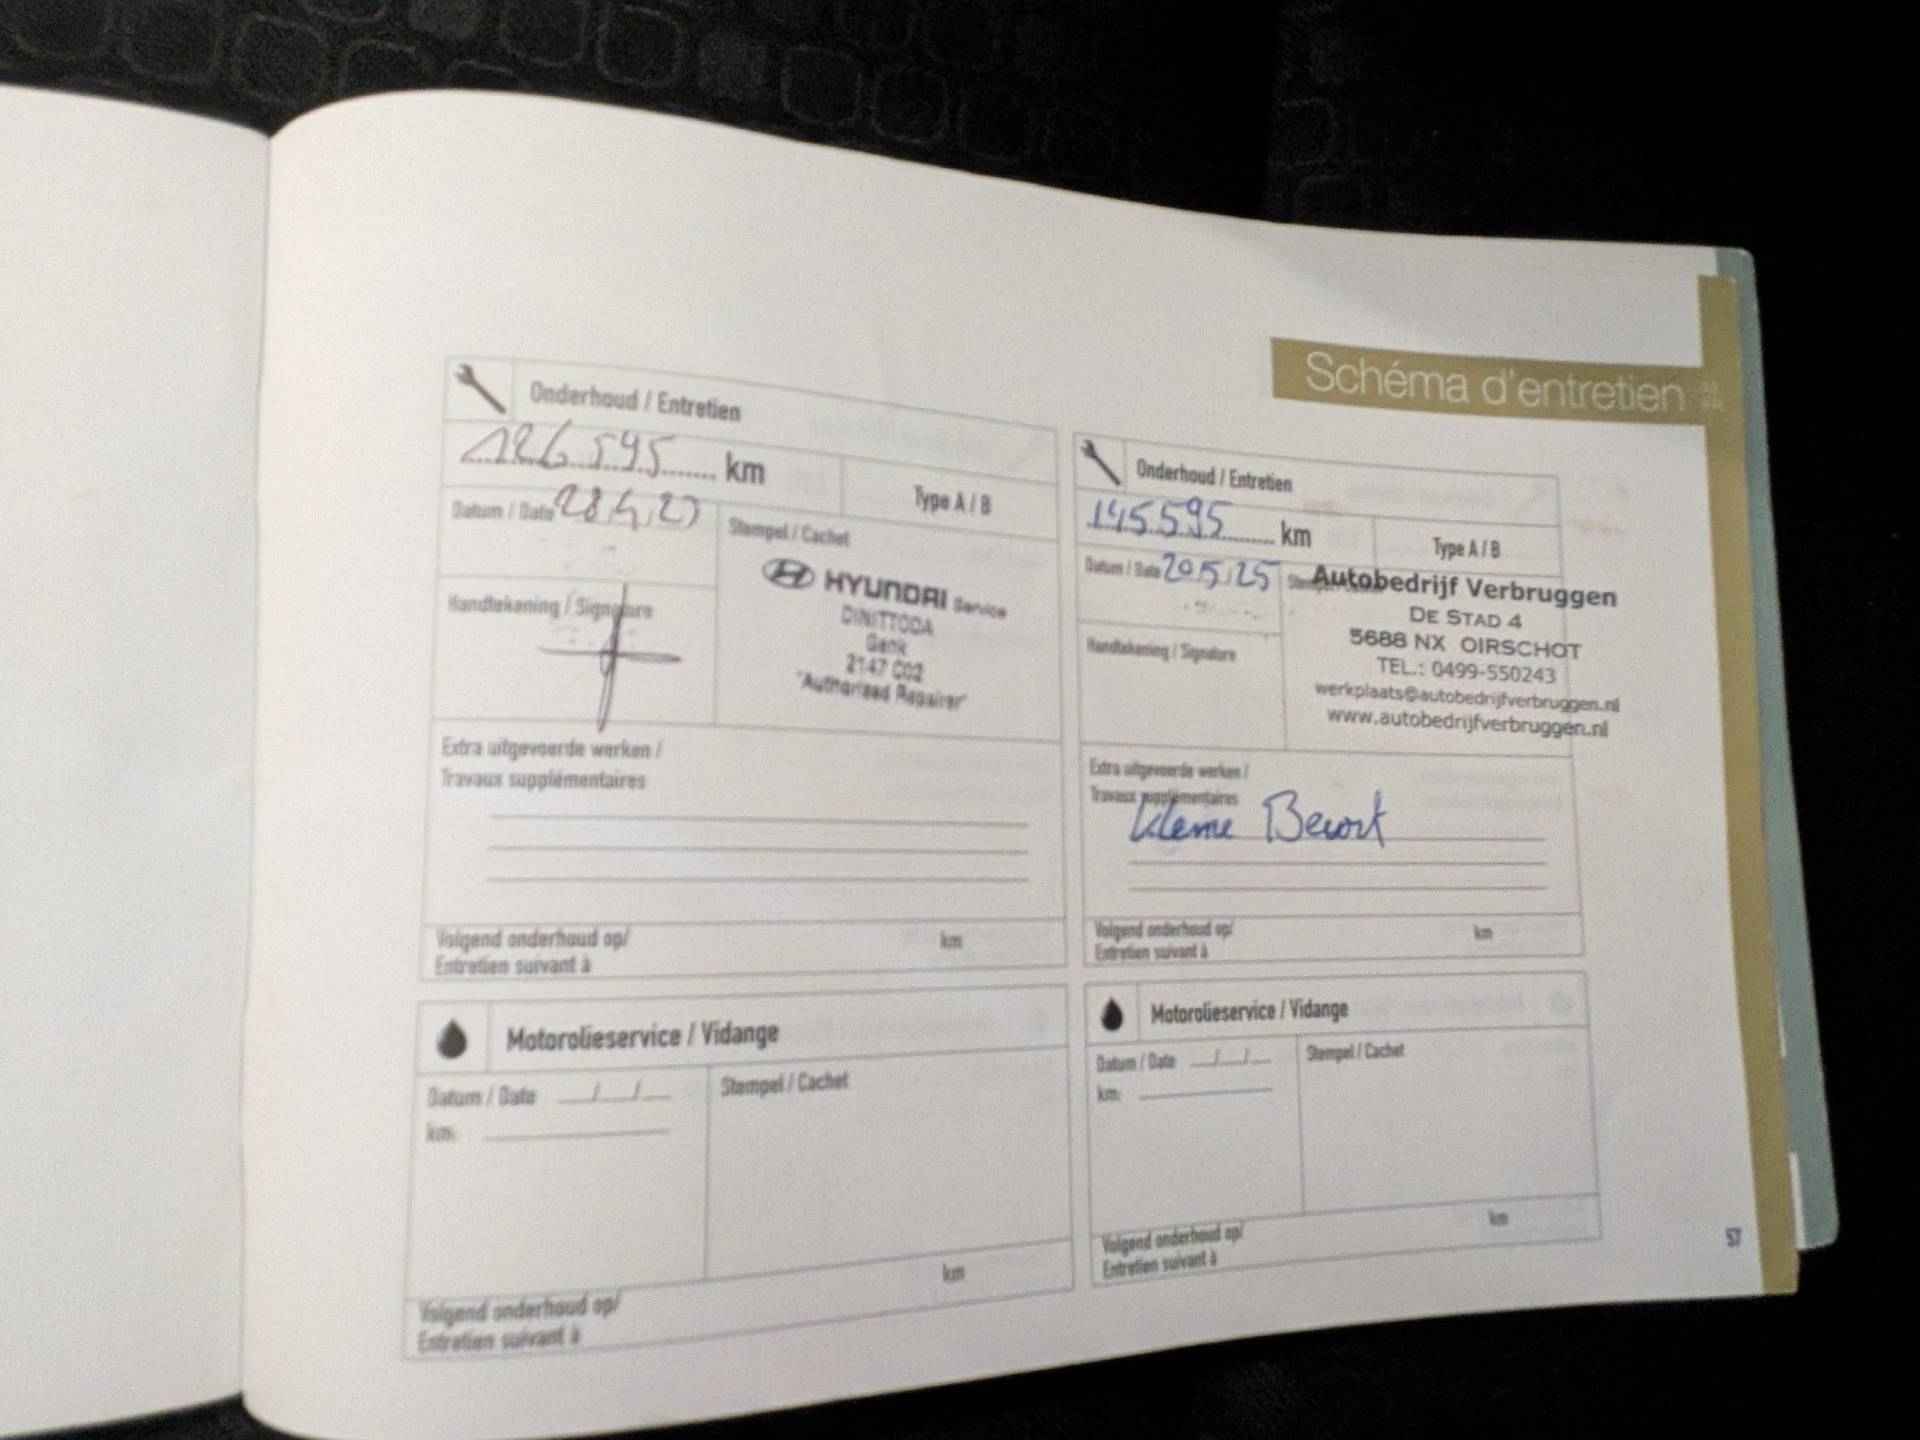 Schéma d'entretien
Onderhoud / Entretien
126.595 km
Type A / B
Datum / Date 28.4.23
Stempel / Cachet
HYUNDAI Service
DINITTODA
Genk
2147 C02
"Authorized Repairer"
Handtekening / Signature
Extra uitgevoerde werken /
Travaux supplémentaires
Volgend onderhoud op/
km
Entretien suivant à
Onderhoud / Entretien
145.595 km
Type A / B
Datum / Date 20.5.25
Autobedrijf Verbruggen
DE STAD 4
5688 NX OIRSCHOT
TEL.: 0499-550243
werkplaats@autobedrijfverbruggen.nl
www.autobedrijfverbruggen.nl
Handtekening / Signature
Extra uitgevoerde werken /
Travaux supplémentaires
Volgend onderhoud op/
km
Entretien suivant à
Motorolieservice / Vidange
Datum / Date __/__/__
Stempel / Cachet
km:
km
Volgend onderhoud op/
Entretien suivant à
Motorolieservice / Vidange
Datum / Date __/__/__
Stempel / Cachet
km:
km
Volgend onderhoud op/
Entretien suivant à
57